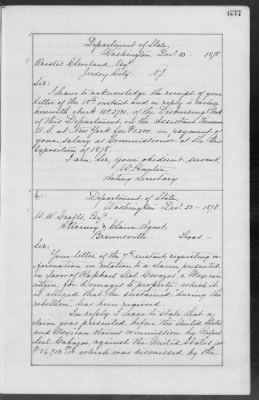 637
Department of State,
Washington, Decr. 23 1878.
Orestes Cleveland, Esqr.
Jersey City. N.J.
Sir:
I have to acknowledge the receipt of your
letter of the 18th instant and in reply to enclose
herewith check No. of the Disbursing Clerk
of this Department, on the Assistant Treasurer
U.S. at New York for $1,200 in payment of
your salary as Commissioner at the Paris
Exposition of 1878.
I am, Sir, your obedient servant,
W. Hunter
Acting Secretary
Department of State,
Washington Decr. 23 - 1878.
W. W. Esqr.
Attorney & Claim Agent,
Brownsville Texas -
Sir:
Your letter of the 7th instant, requesting in-
formation in relation to a claim presented
in favor of Raphael Leal a Mexican
citizen for damages to property, which it
is alleged that he sustained "during the
rebellion", has been received.
In reply I have to state that a
claim was presented before the United States
and Mexican claims commission by Rafael
Leal against the United States for
which was dismissed by the